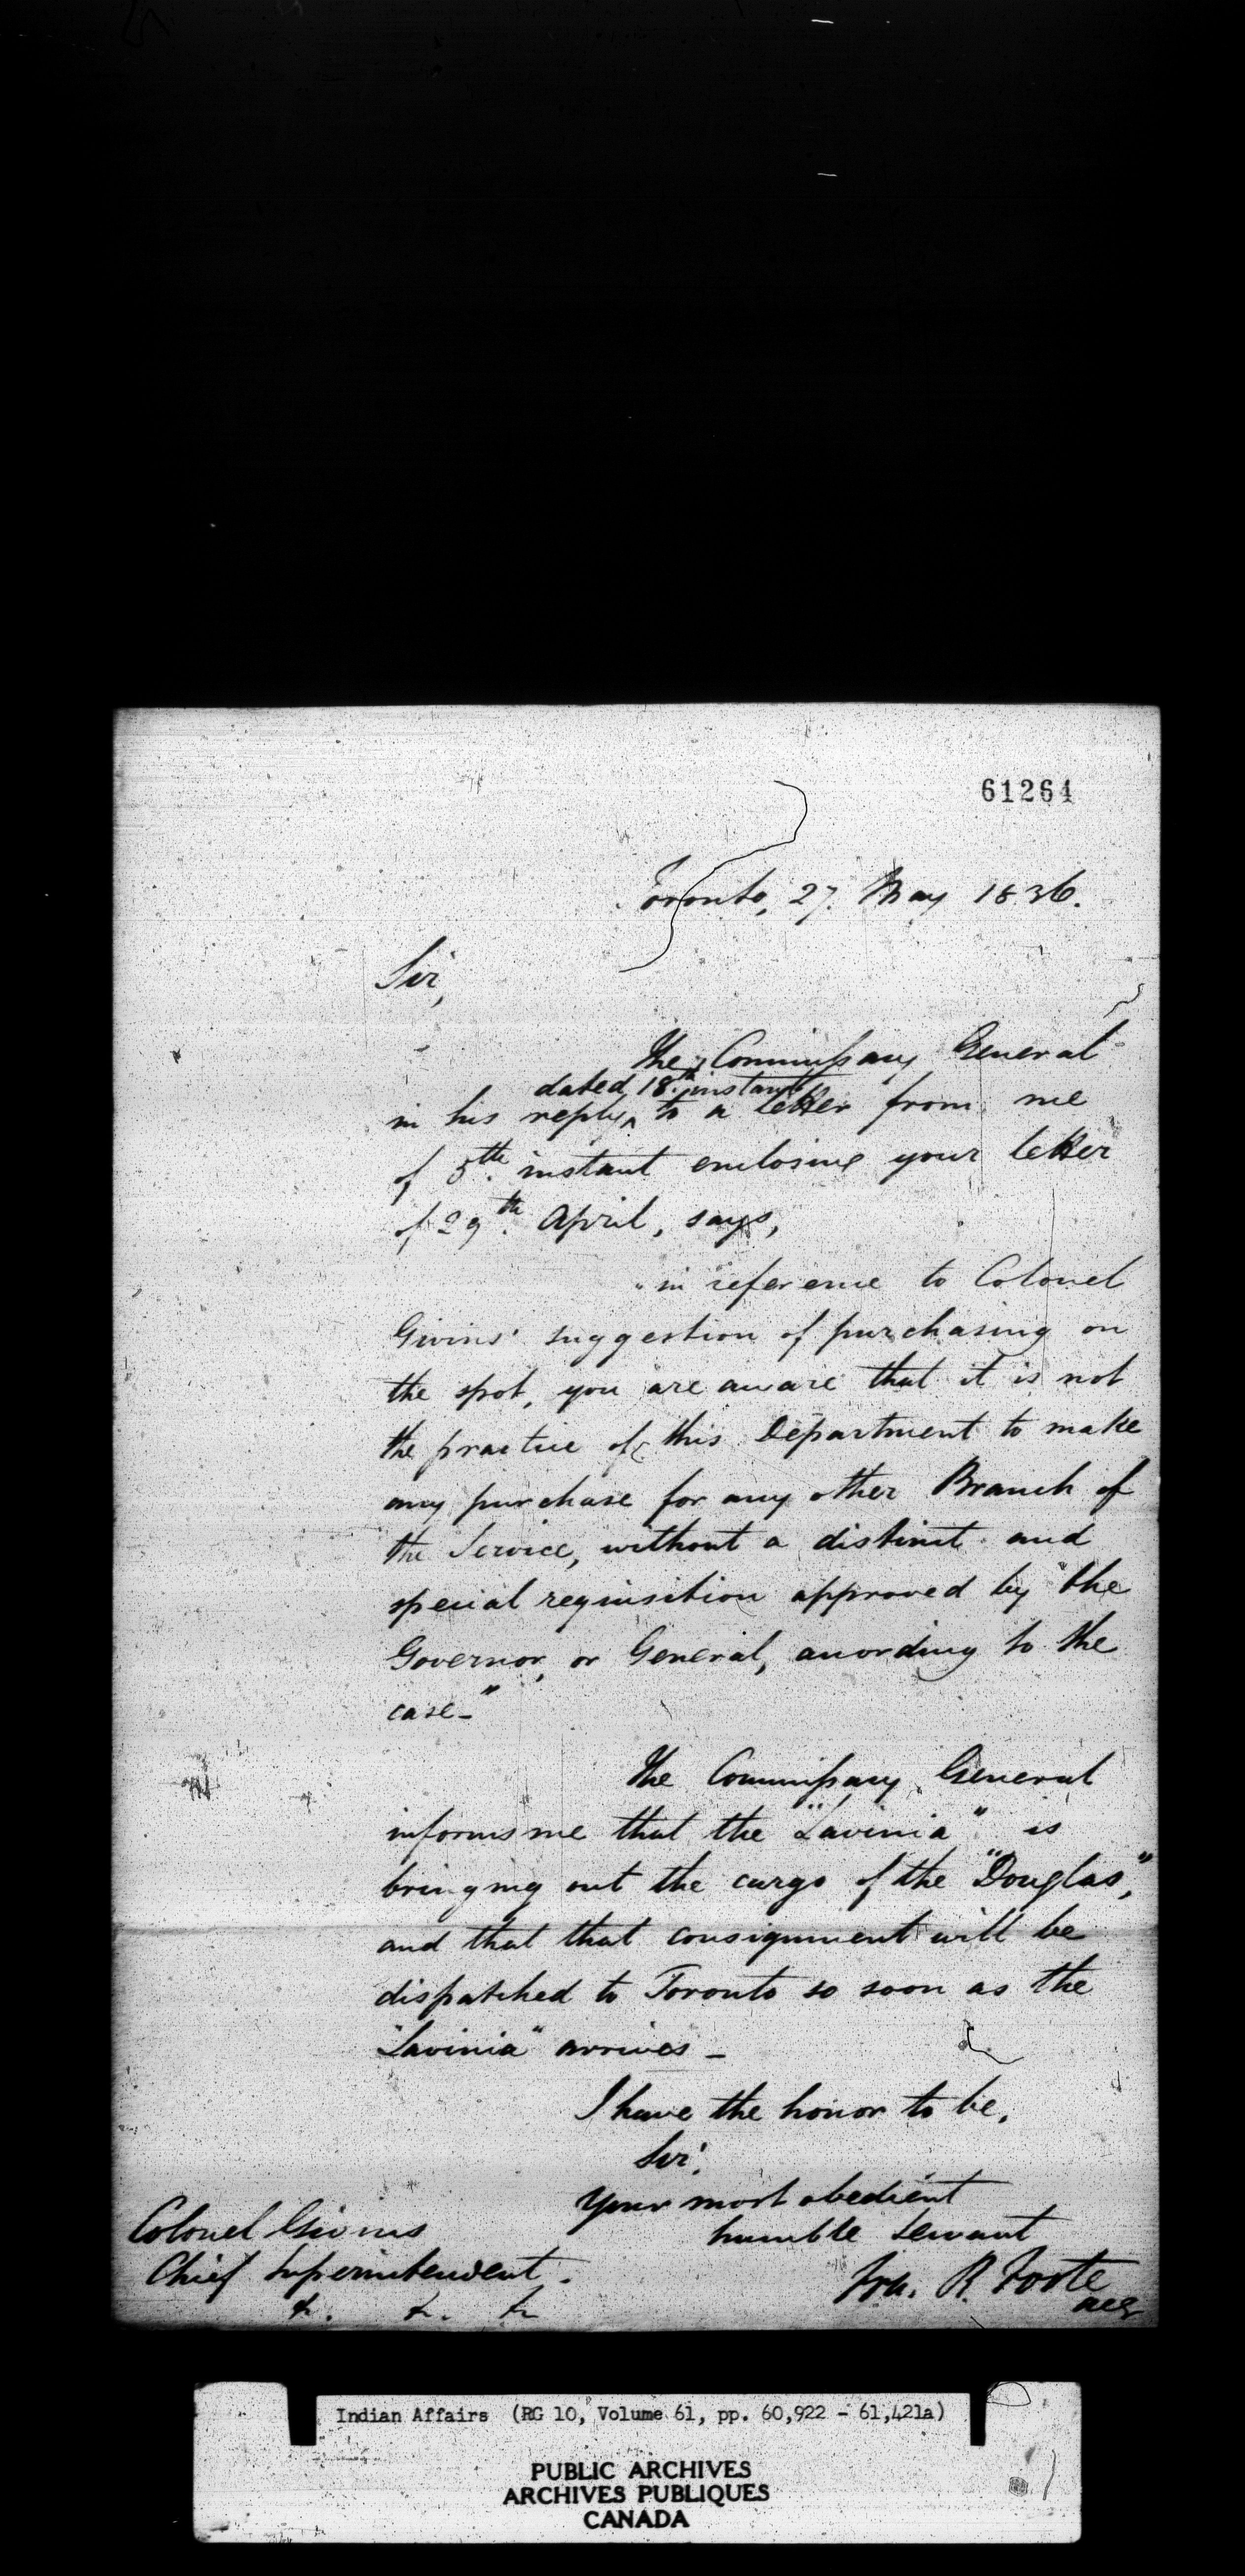 61264
Toronto, 27. May 1836.
Sir,
The Commissary General
dated 18th. instant
in his reply ^ to a letter from me
of 5th. instant enclosing your letter
of 29th. April, says,
"in reference to Colonel
Givins' suggestion of purchasing on
the spot, you are aware that it is not
the practice of this Department to make
any purchase for any other Branch of
the Service, without a distinct and
special requisition approved by the
Governor, or General, according to the
case_"
The Commissary General
informs me that the "Lavinia" is
bringing out the cargo of the "Douglas",
and that that consignment will be
dispatched to Toronto so soon as the
"Lavinia" arrives _
I have the honor to be,
Sir,
Your most obedient
humble servant
Colonel Givins
Chief Superintendent.
&. &. &
R. Foote
ACG
Indian Affairs (RG 10, Volume 61, pp. 60,922 - 61,421a)
PUBLIC ARCHIVES
ARCHIVES PUBLIQUES
CANADA